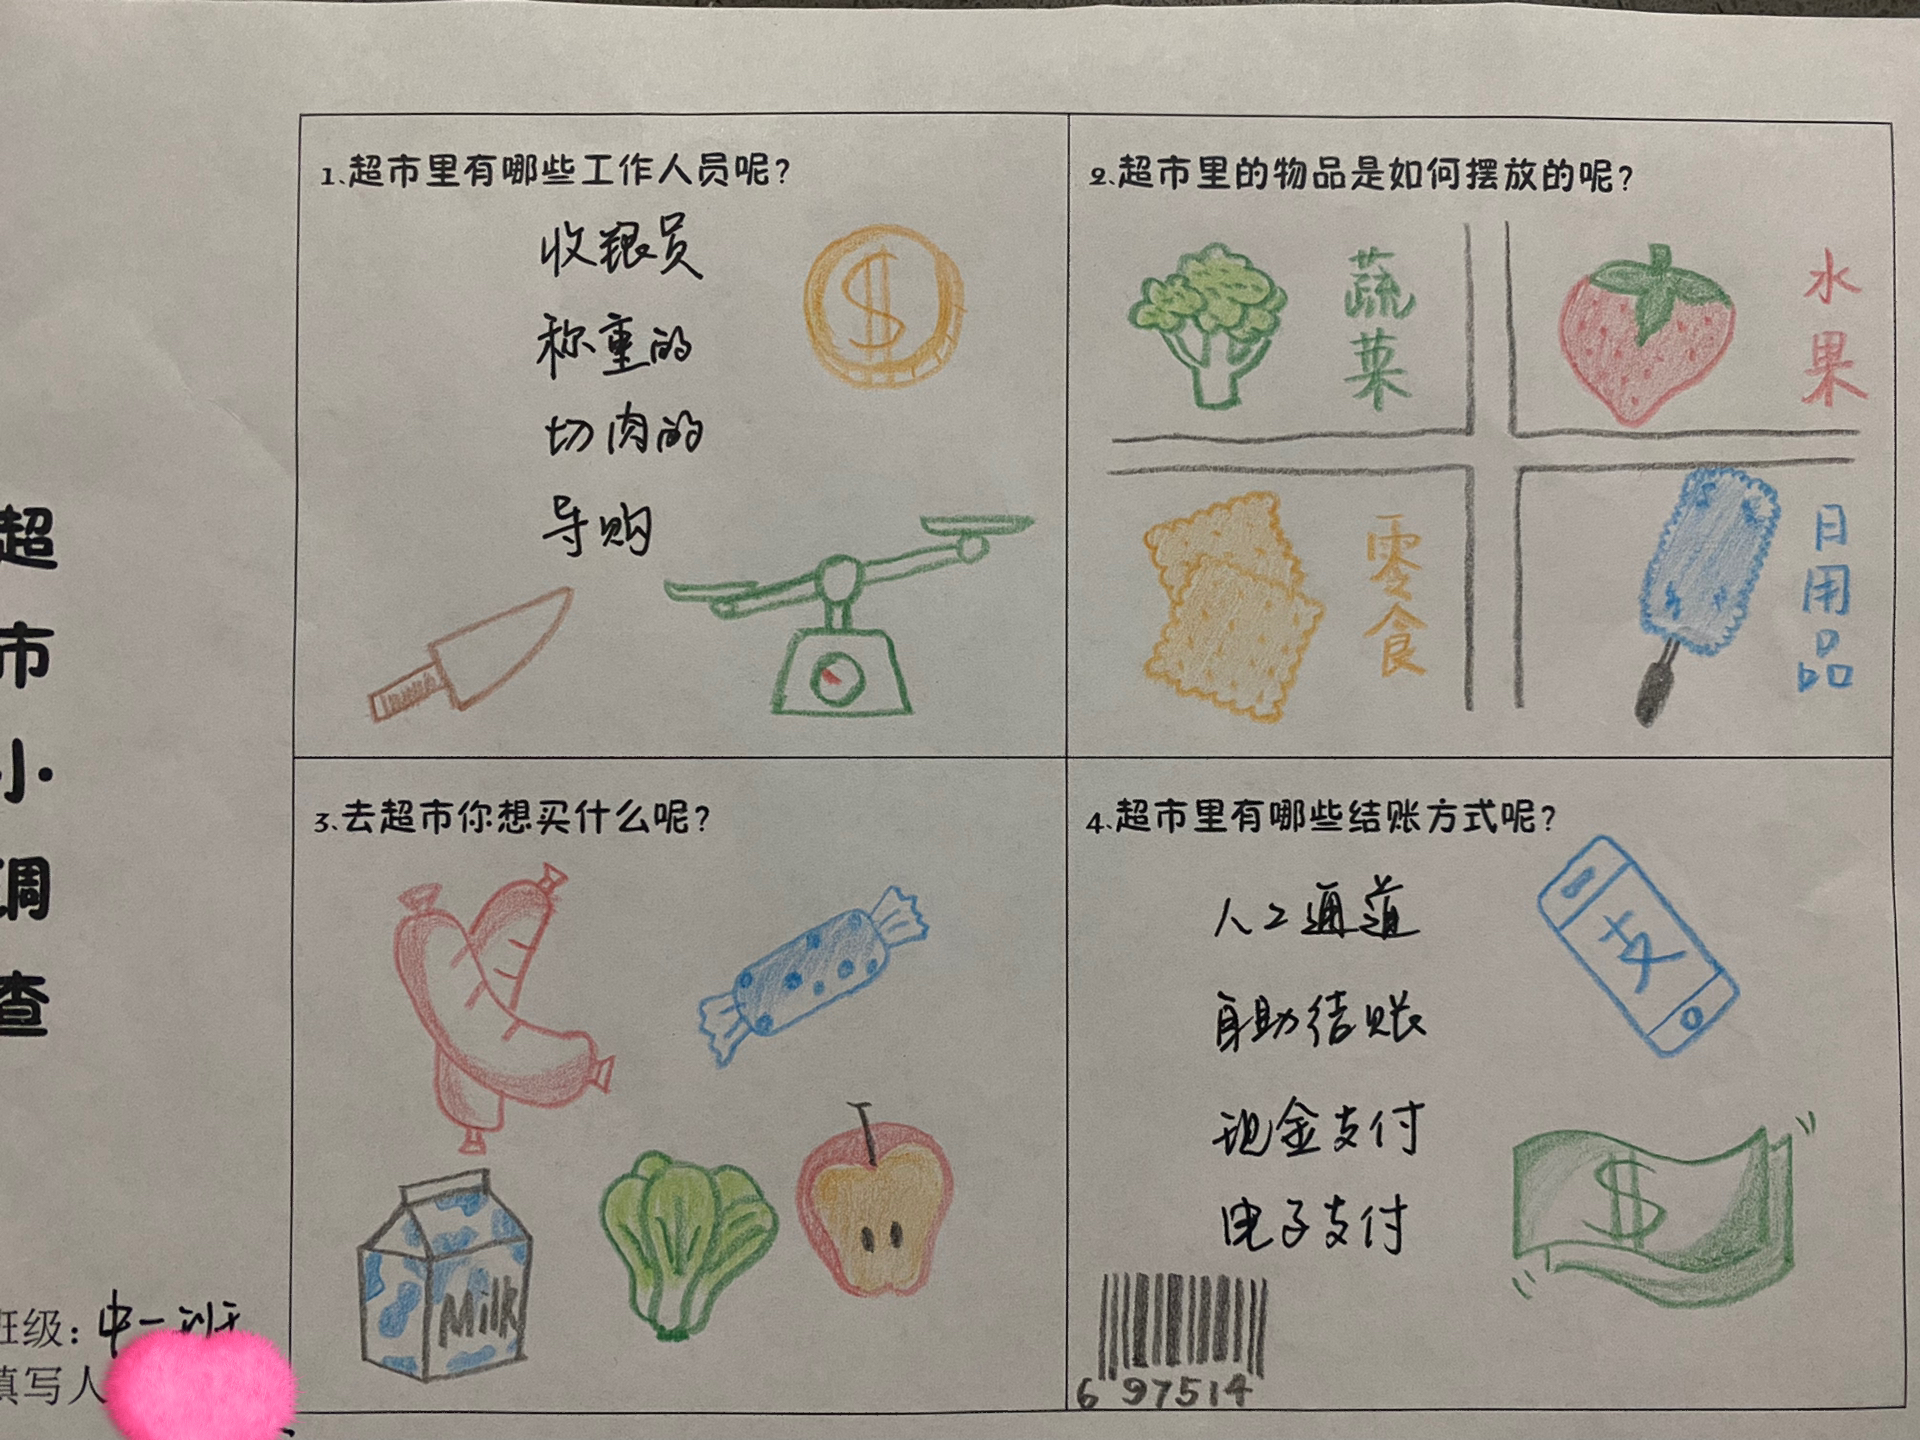 超市小调查
班级：中一班
填写人
1.超市里有哪些工作人员呢？
收银员
称重的
切肉的
导购
$
2.超市里的物品是如何摆放的呢？
蔬菜
水果
零食
日用品
3.去超市你想买什么呢？
Milk
4.超市里有哪些结账方式呢？
人工通道
自助结账
现金支付
电子支付
支
$
6 97514